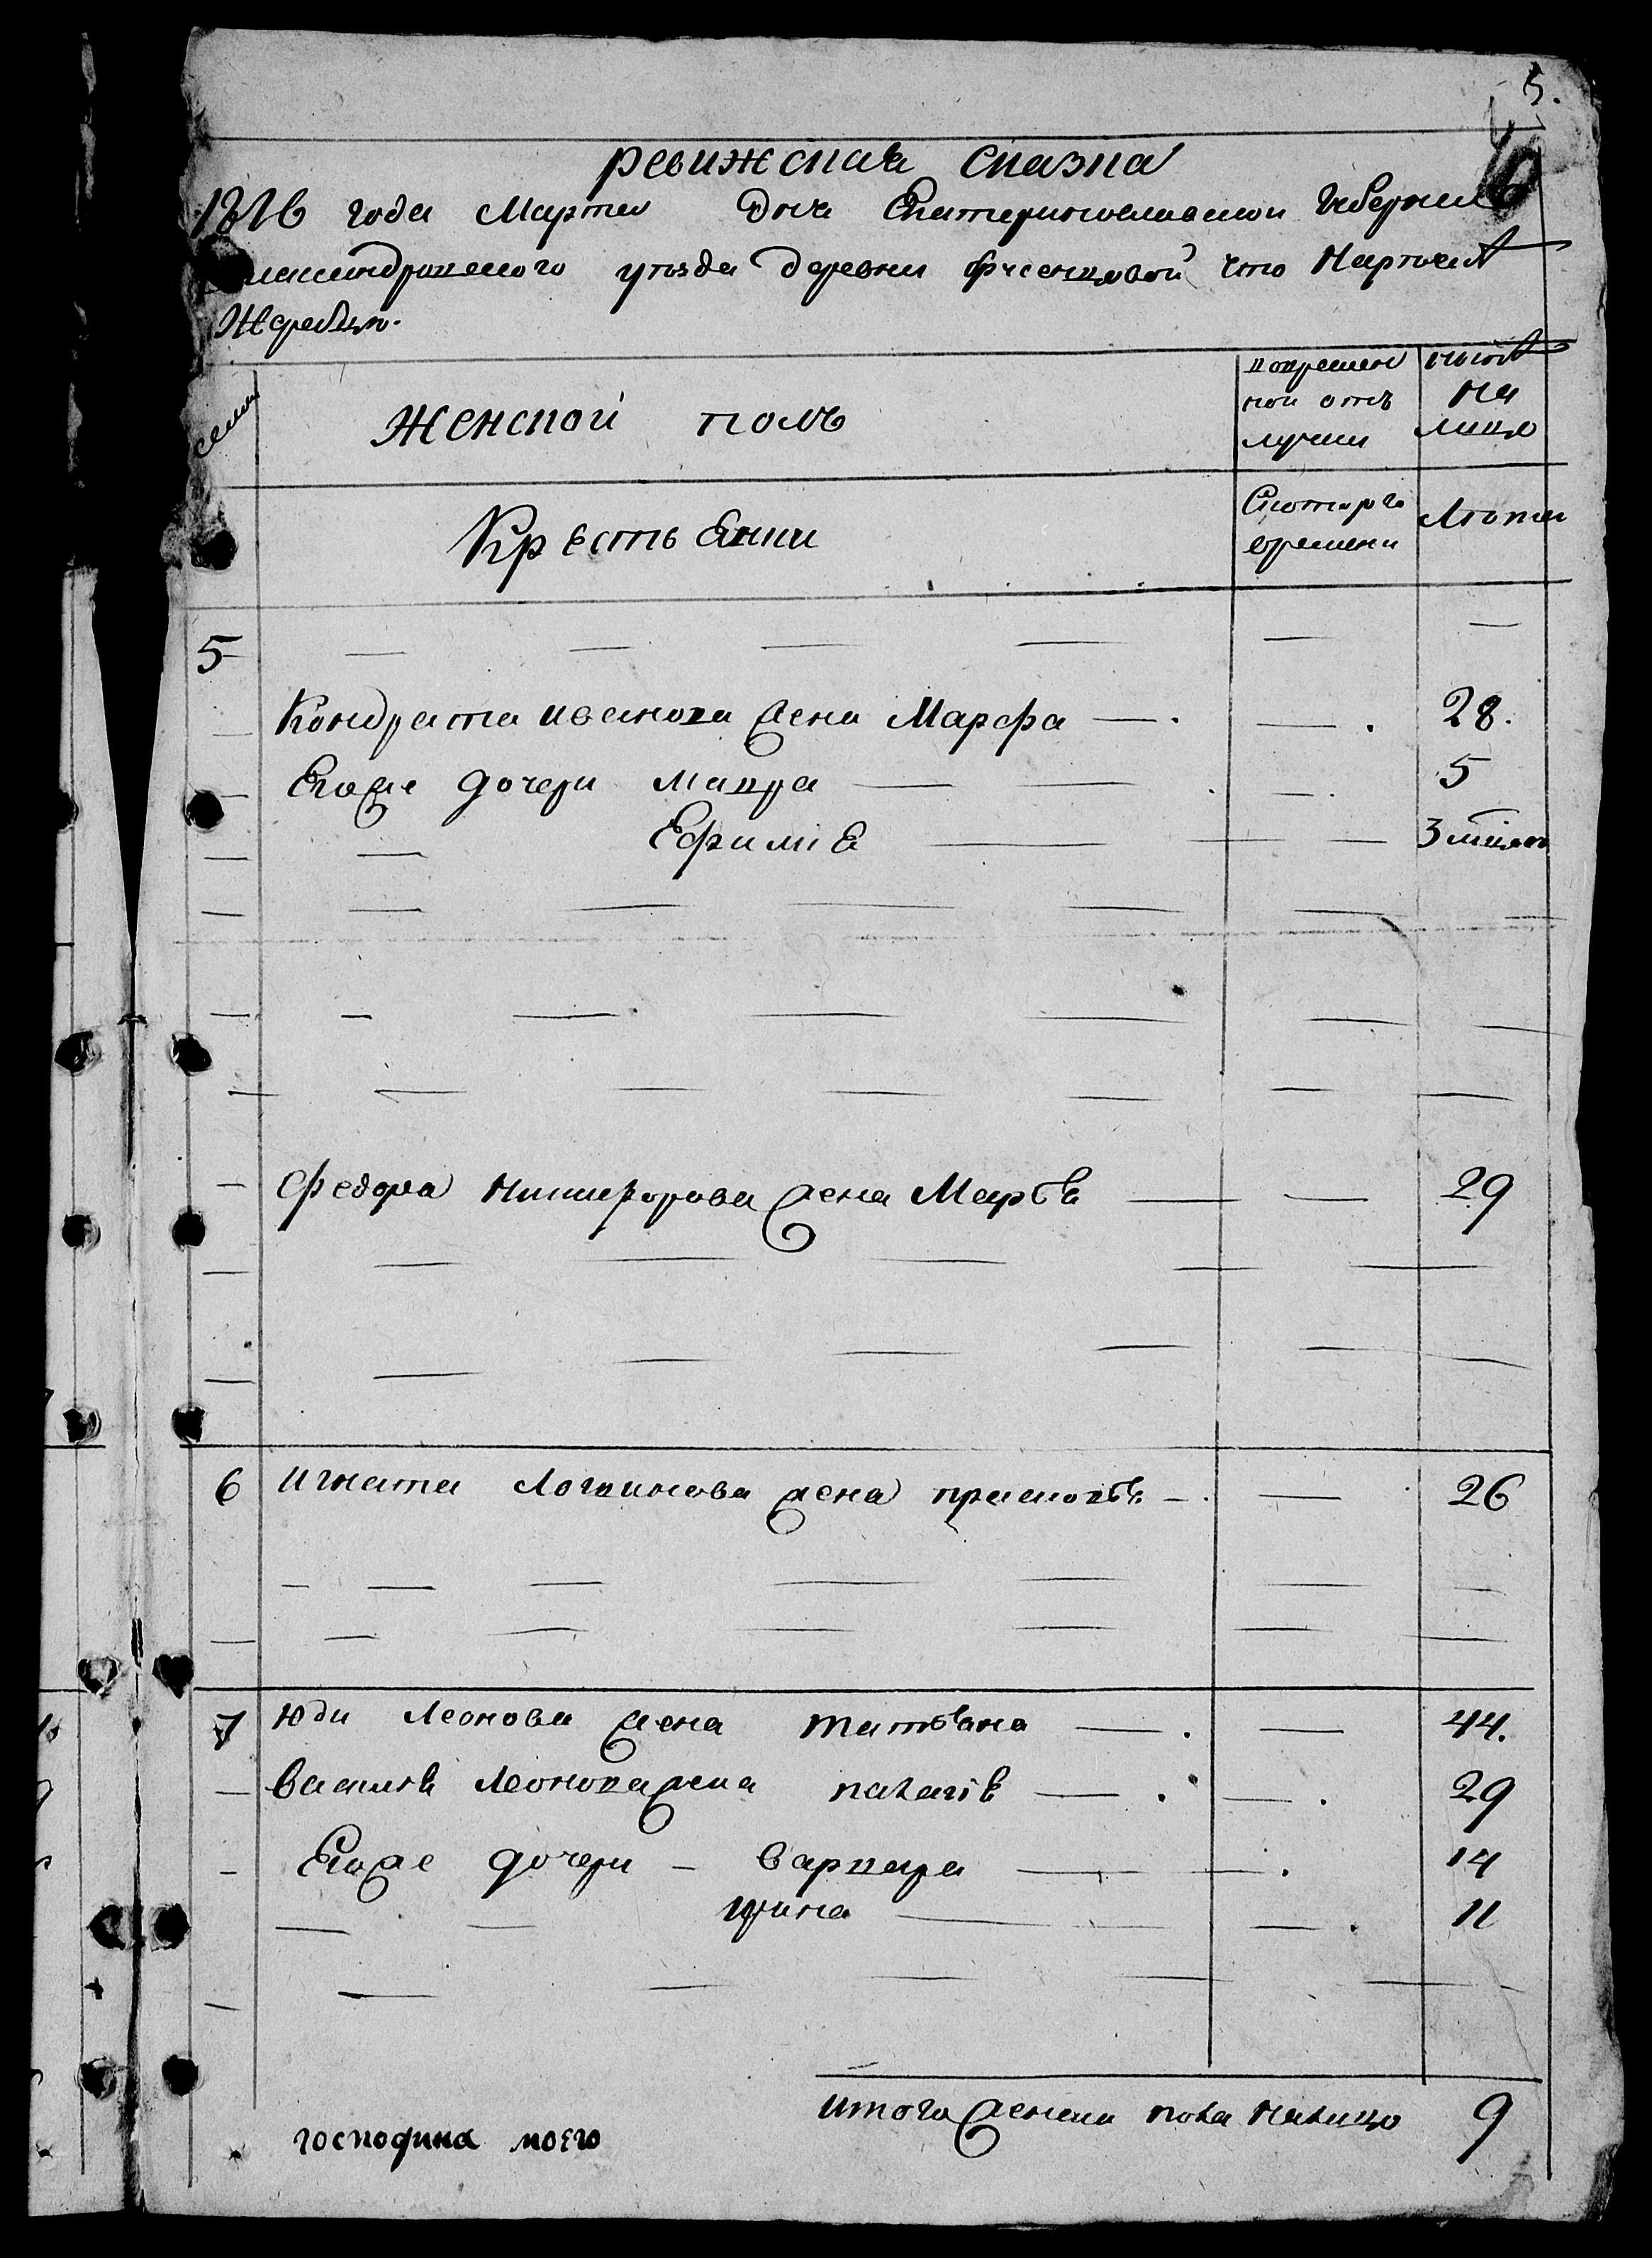 5.
10
ревижская сказка
1816 года Марта дня Екатеринославской губернии
лександровского уезда деревни что
Жеребцъ.
семьи
Женской полъ
во времен
ной отъ
лучки
ныне
на
лицо
Крестьяни
Скоторго
времени
Лѣта
5
Кондрата иванова жена Марфа 28.
Егоже дочери мавра 5
Ефиміѣ 3 мѣцов
Федора Никифорова жена Марѣя 29
6 Игната Логвинова жена 26
7 Юди Леонова жена татьяна 44.
Василія Леонова жена палагія 29
Егоже дочери варвара 14
ирина 11
итого женска пола налицо 9
господина моего